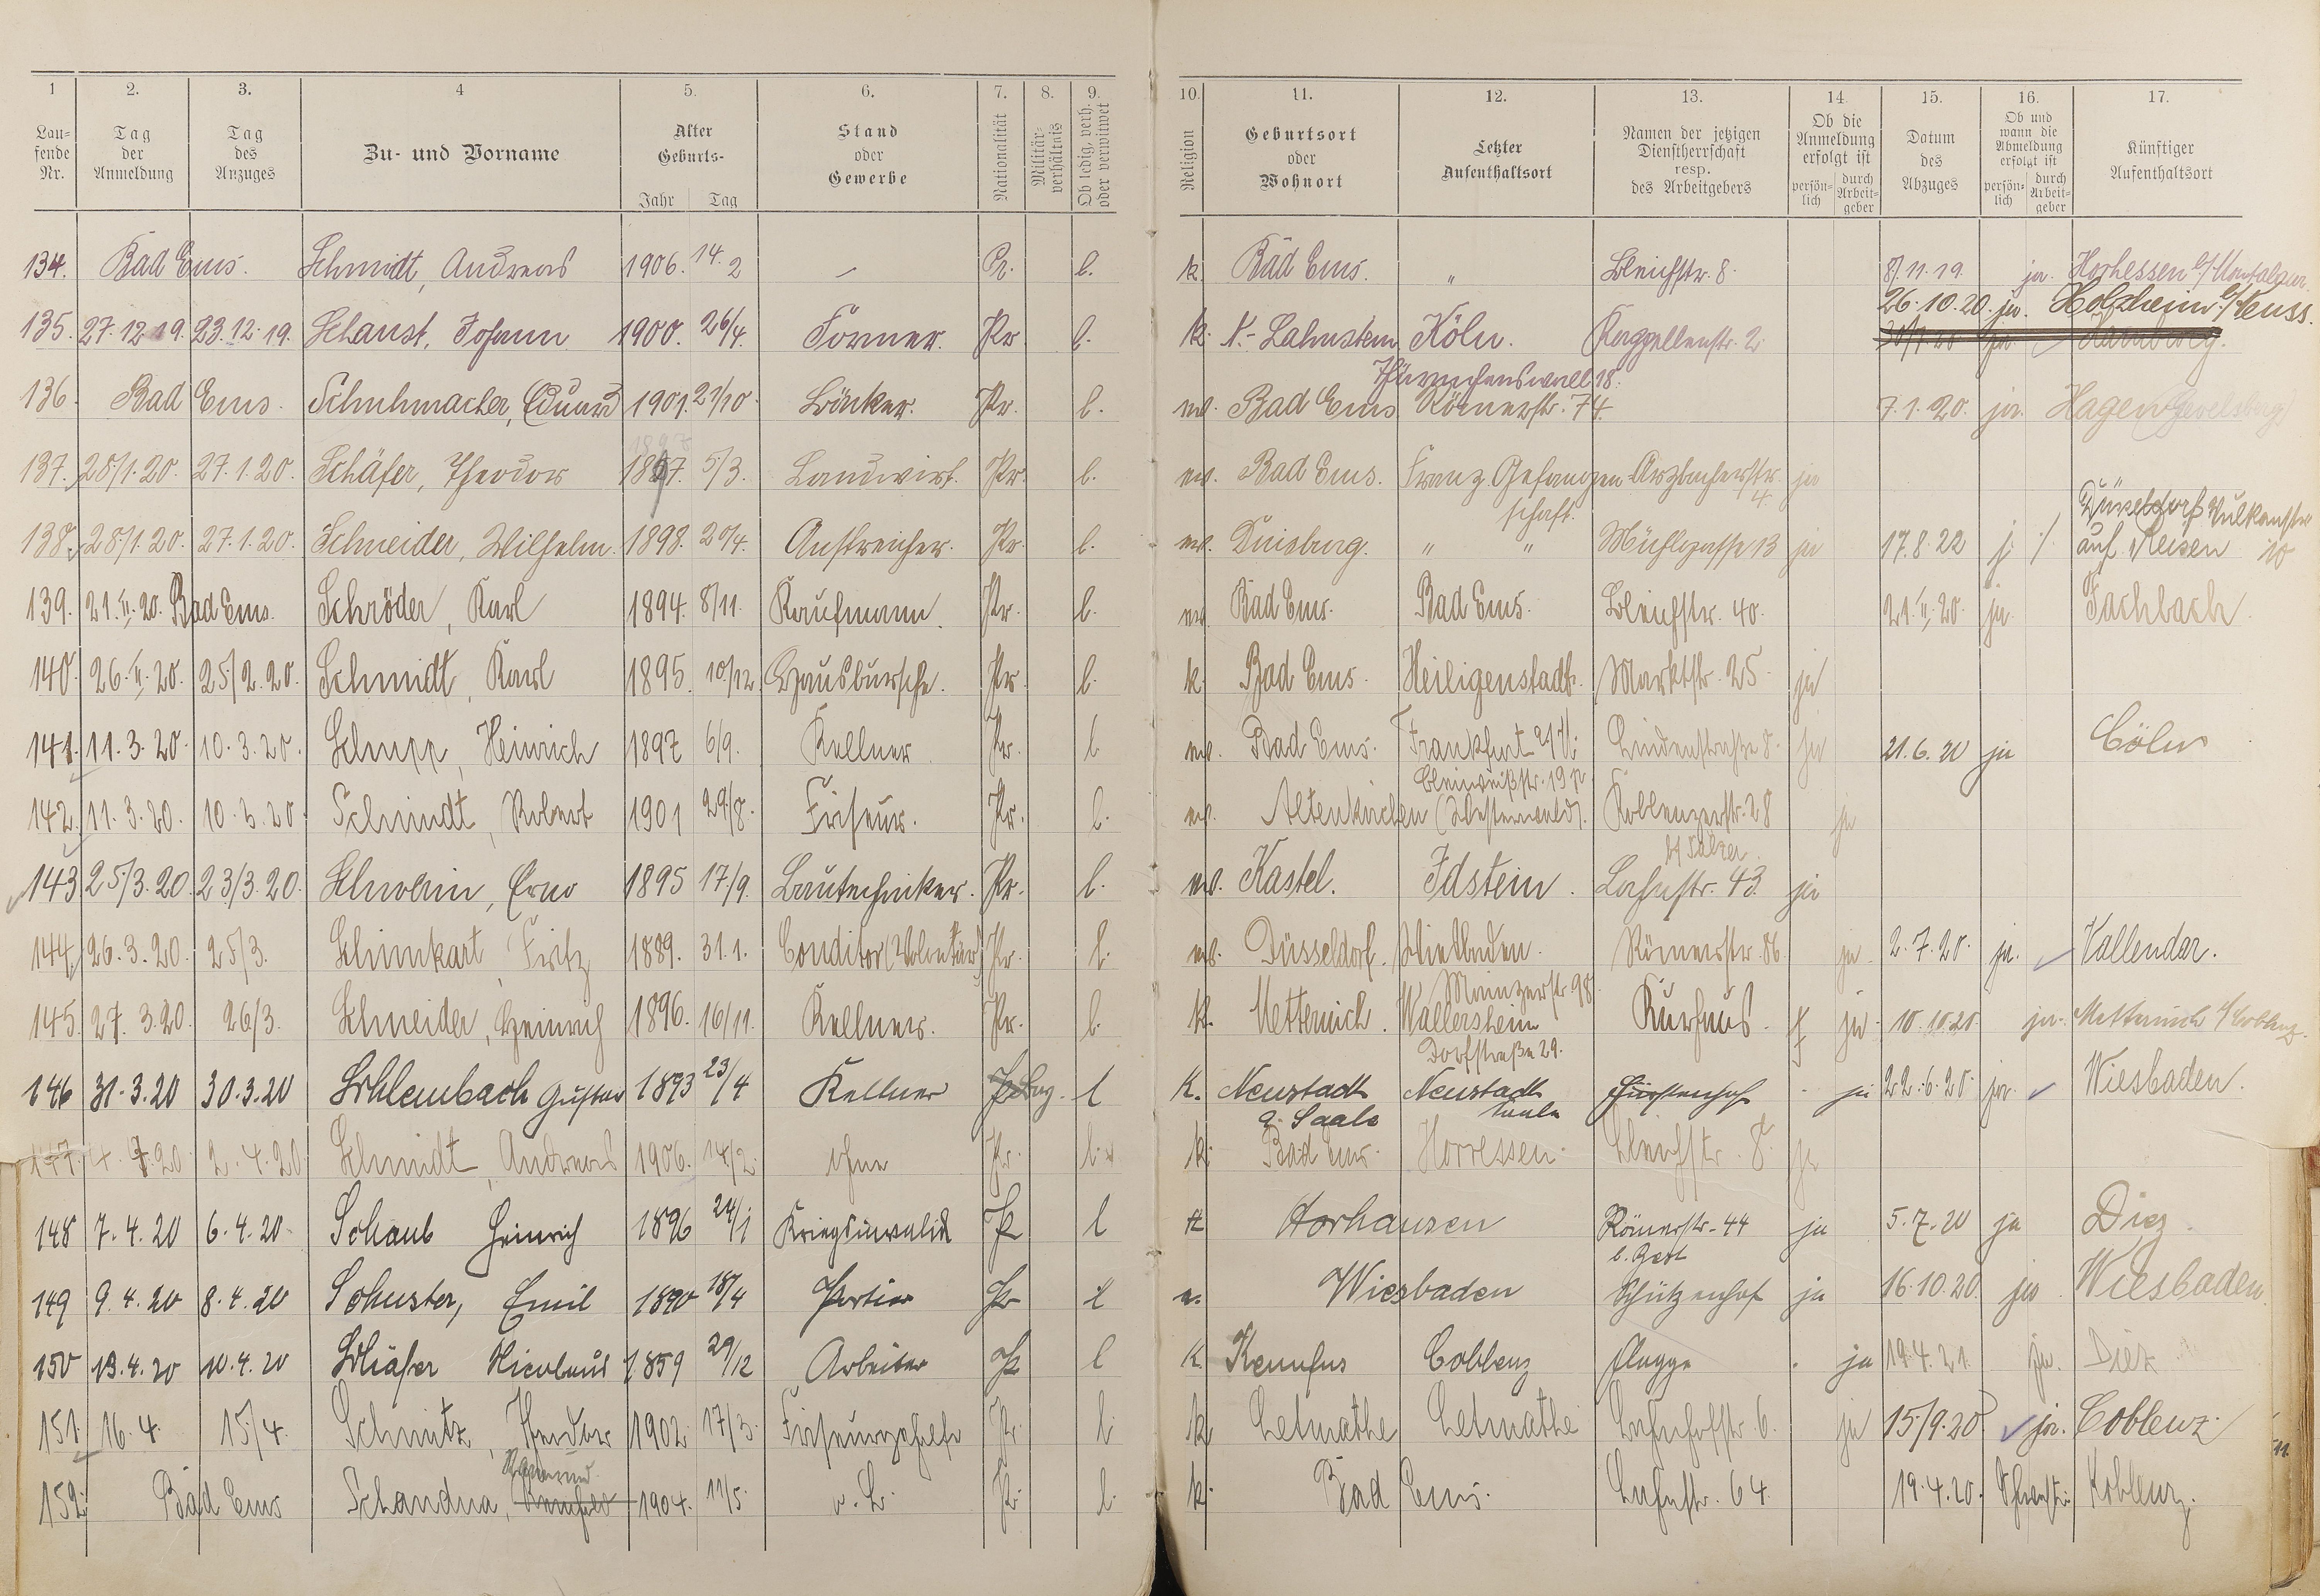 1 2. 3. 4 5. 6. 7. 8. 9. 10. 11. 12. 13. 14 15. 16. 17.
Lau-fende Nr. Tag der Anmeldung Tag des Anzuges Zu- und Vorname Alter Geburts- Jahr Tag Stand oder Gewerbe Nationalität Militär-verhältnis Ob ledig, verh. oder verwitwet Religion Geburtsort oder Wohnort Letzter Aufenthaltsort Namen der jetzigen Dienstherrschaft resp. des Arbeitgebers Ob die Anmeldung erfolgt ist persön-lich durch Arbeit-geber Datum des Abzuges Ob und wann die Abmeldung erfolgt ist persön-lich durch Arbeit-geber Künftiger Aufenthaltsort
134. Bad Ems. Schmidt, Andreas 1906. 14.2 — Pr. l. k. Bad Ems. " Bleichstr. 8. 8/11.19. ja. Horhessen b/Montabaur.
26.10.20. ja. Holzheim b/Neuss.
135. 27.12.19. 23.12.19. Schaust, Johann 1900. 26/4. Former. Pr l. k. N.-Lahnstein Köln. Kappellenstr. 2 ja
136. Bad Ems. Schuhmacher, Eduard 1901. 21/10. Bäcker. Pr. l. ev. Bad Ems Römerstr. 74. 7.1.20. ja. Hagen (Gevelsberg)
137. 28/1.20. 27.1.20. Schäfer, Theodor 1897. 5/3. Landwirt. Pr. l. ev. Bad Ems. Franz. Gefangenschaft. Arzbacherstr. 4. ja
Düsseldorf Vulkanstr 10
138. 28/1.20. 27.1.20. Schneider, Wilhelm. 1898. 20/4. Anstreicher. Pr. l. ev. Duisburg. " " Mühlgasse 13 ja 17.8.22 j. /. auf Reisen
139. 21.II.20. Bad Ems. Schröder, Karl 1894. 8/11. Kaufmann. Pr. l. ev Bad Ems. Bad Ems. Bleichstr. 40. 21.II.20. ja. Fachbach.
140. 26.II.20. 25/2.20. Schmidt, Karl 1895. 10/12 Hausbursche. Pr. l. k. Bad Ems. Heiligenstadt. Marktstr. 25. ja
141. 11.3.20. 10.3.20. Schupp, Heinrich 1897 6/9. Kellner. Pr. l ev. Bad Ems. Frankfurt a/M. Lindenstrasse 8. ja 21.6.20 ja Cöln
Bleiweißstr. 19 p
142. 11.3.20. 10.3.20. Schmidt, Robert 1901 29/8. Friseur. Pr. l. ev. Altenkirchen (Westerwald). Koblenzerstr. 28 ja
143 25/3.20. 23/3.20. Schwenn, Erno 1895 17/9. Bautechniker. Pr. l. ev. Kastel. Idstein. Lahnstr. 43. ja
144. 26.3.20. 25/3. Schimkart, Fritz 1889. 31.1. Conditor (Volontär) Pr. l. ev. Düsseldorf. Wiesbaden. Römerstr. 86 ja. 2.7.20. ja. Vallendar.
Mainzerstr 98.
145. 27.3.20. 26/3. Schneider, Heinrich 1896. 16/11. Kellner. Pr. l. k. Metternich. Wallersheim Kurhaus. ja. 10.10.20. ja. Metternich b/Coblenz.
Dorfstraße 29.
146 31.3.20 30.3.20 Schlembach Gustav 1893 23/4 Kellner Bay. l K. Neustadt a. Saale Neustadt Saale Fürstenhof - ja 22.6.20 ja. Wiesbaden.
147. 4.4.20 2.4.20 Schmidt, Andreas 1906. 14/2. ohne Pr. l. k. Bad Ems. Horressen. Bleichstr. 8. ja
148 7.4.20 6.4.20 Schaub Heinrich 1896 24/1 Kriegsinvalide Pr l k Horhausen Römerstr. 44 ja 5.7.20 ja Diez.
149 9.4.20 8.4.20 Schuster, Emil 1890 18/4 Portier Pr l e. Wiesbaden Schützenhof ja 16.10.20. ja. Wiesbaden.
150 13.4.20 10.4.20 Schäfer Nicolaus 1859 29/12 Arbeiter Pr l K Kennfus Coblenz Flugge - ja 19.4.21. ja. Diez
151. 16.4. 15/4. Schmitz, Theodor 1902. 17/3. Friseurgehilfe Pr. l. k Letmathe Letmathe Bahnhofstr. 6. ja 15/9.20 ja. Coblenz.
152. Bad Ems Schandua, 1904. 11/5. o. B. Pr. l. k. Bad Ems. Lahnstr. 64. 19.4.20. Koblenz.